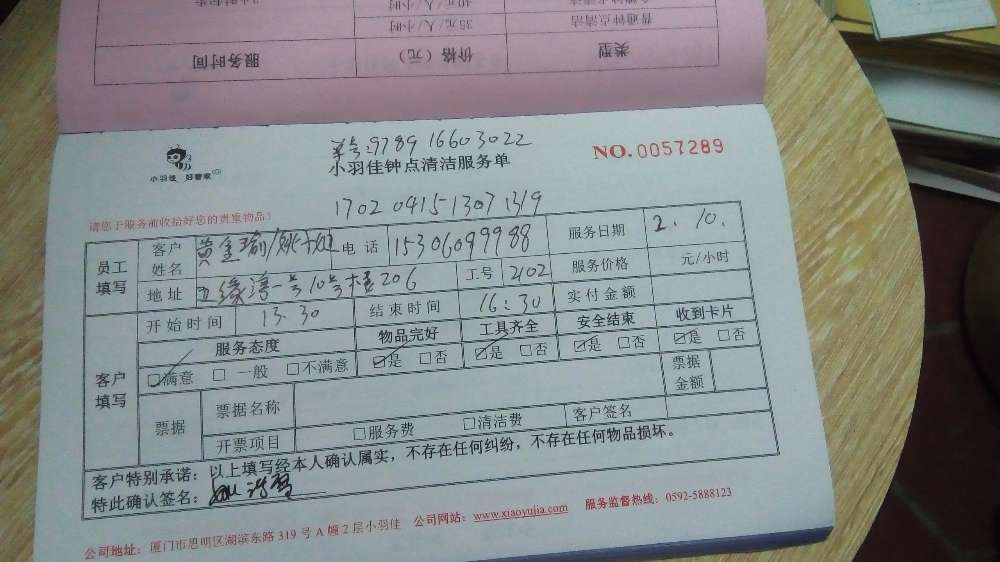 2小时起步
40元/人/小时
普通钟点清洁 35元/人/小时
类型 价格（元） 服务时间
单号:9789 16603022
小羽佳 好管家
小羽佳钟点清洁服务单
NO.0057289
请您于服务前收拾好您的贵重物品!
1702 0415 1307 1319
员工填写 客户姓名 黄金瑜/姚 电话 15306099988 服务日期 2.10.
地址 五缘湾一号10号楼206 工号 2102 服务价格 元/小时
开始时间 13:30 结束时间 16:30 实付金额
客户填写 服务态度 物品完好 工具齐全 安全结束 收到卡片
☑满意 □一般 □不满意 ☑是 □否 ☑是 □否 ☑是 □否 ☑是 □否
票据 票据名称 票据金额
开票项目 □服务费 □清洁费 客户签名
客户特别承诺：以上填写经本人确认属实，不存在任何纠纷，不存在任何物品损坏。
特此确认签名：
公司地址：厦门市思明区湖滨东路 319 号 A 幢 2 层小羽佳 公司网站：www.xiaoyujia.com 服务监督热线：0592-5888123